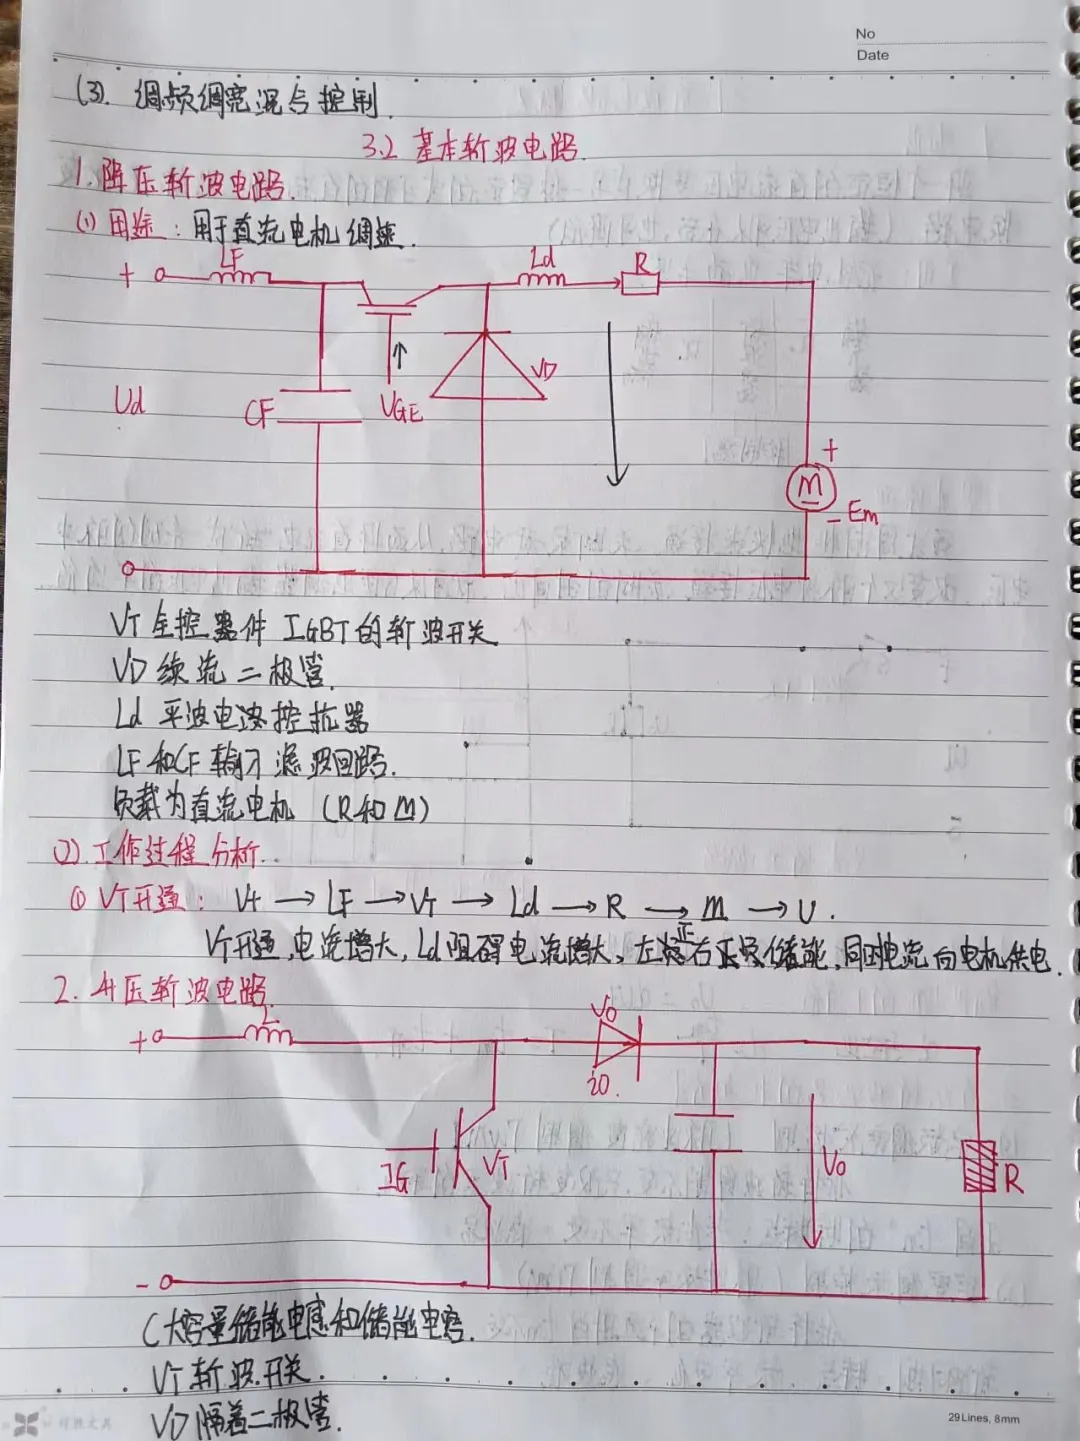 No
Date
(3). 调频调宽混合控制.
3.2 基本斩波电路.
1. 降压斩波电路.
(1) 用途: 用于直流电机调速.
LF Ld R
+
Ud CF VGE VD
+
M
- Em
VT 全控器件 IGBT的斩波开关
VD 续流二极管.
Ld 平波电波控抗器
LF和CF 输入滤波回路.
负载为直流电机 (R和M)
(2). 工作过程分析.
① VT开通: V+ → LF → VT → Ld → R → M → U.
VT开通,电流增大, Ld阻碍电流增大, 左正右负储能, 同时电流向电机供电.
2. 升压斩波电路.
+ L VD
i0.
IG VT V0 R
-
C大容量储能电感和储能电容.
VT 斩波开关.
VD 隔着二极管.
29Lines, 8mm